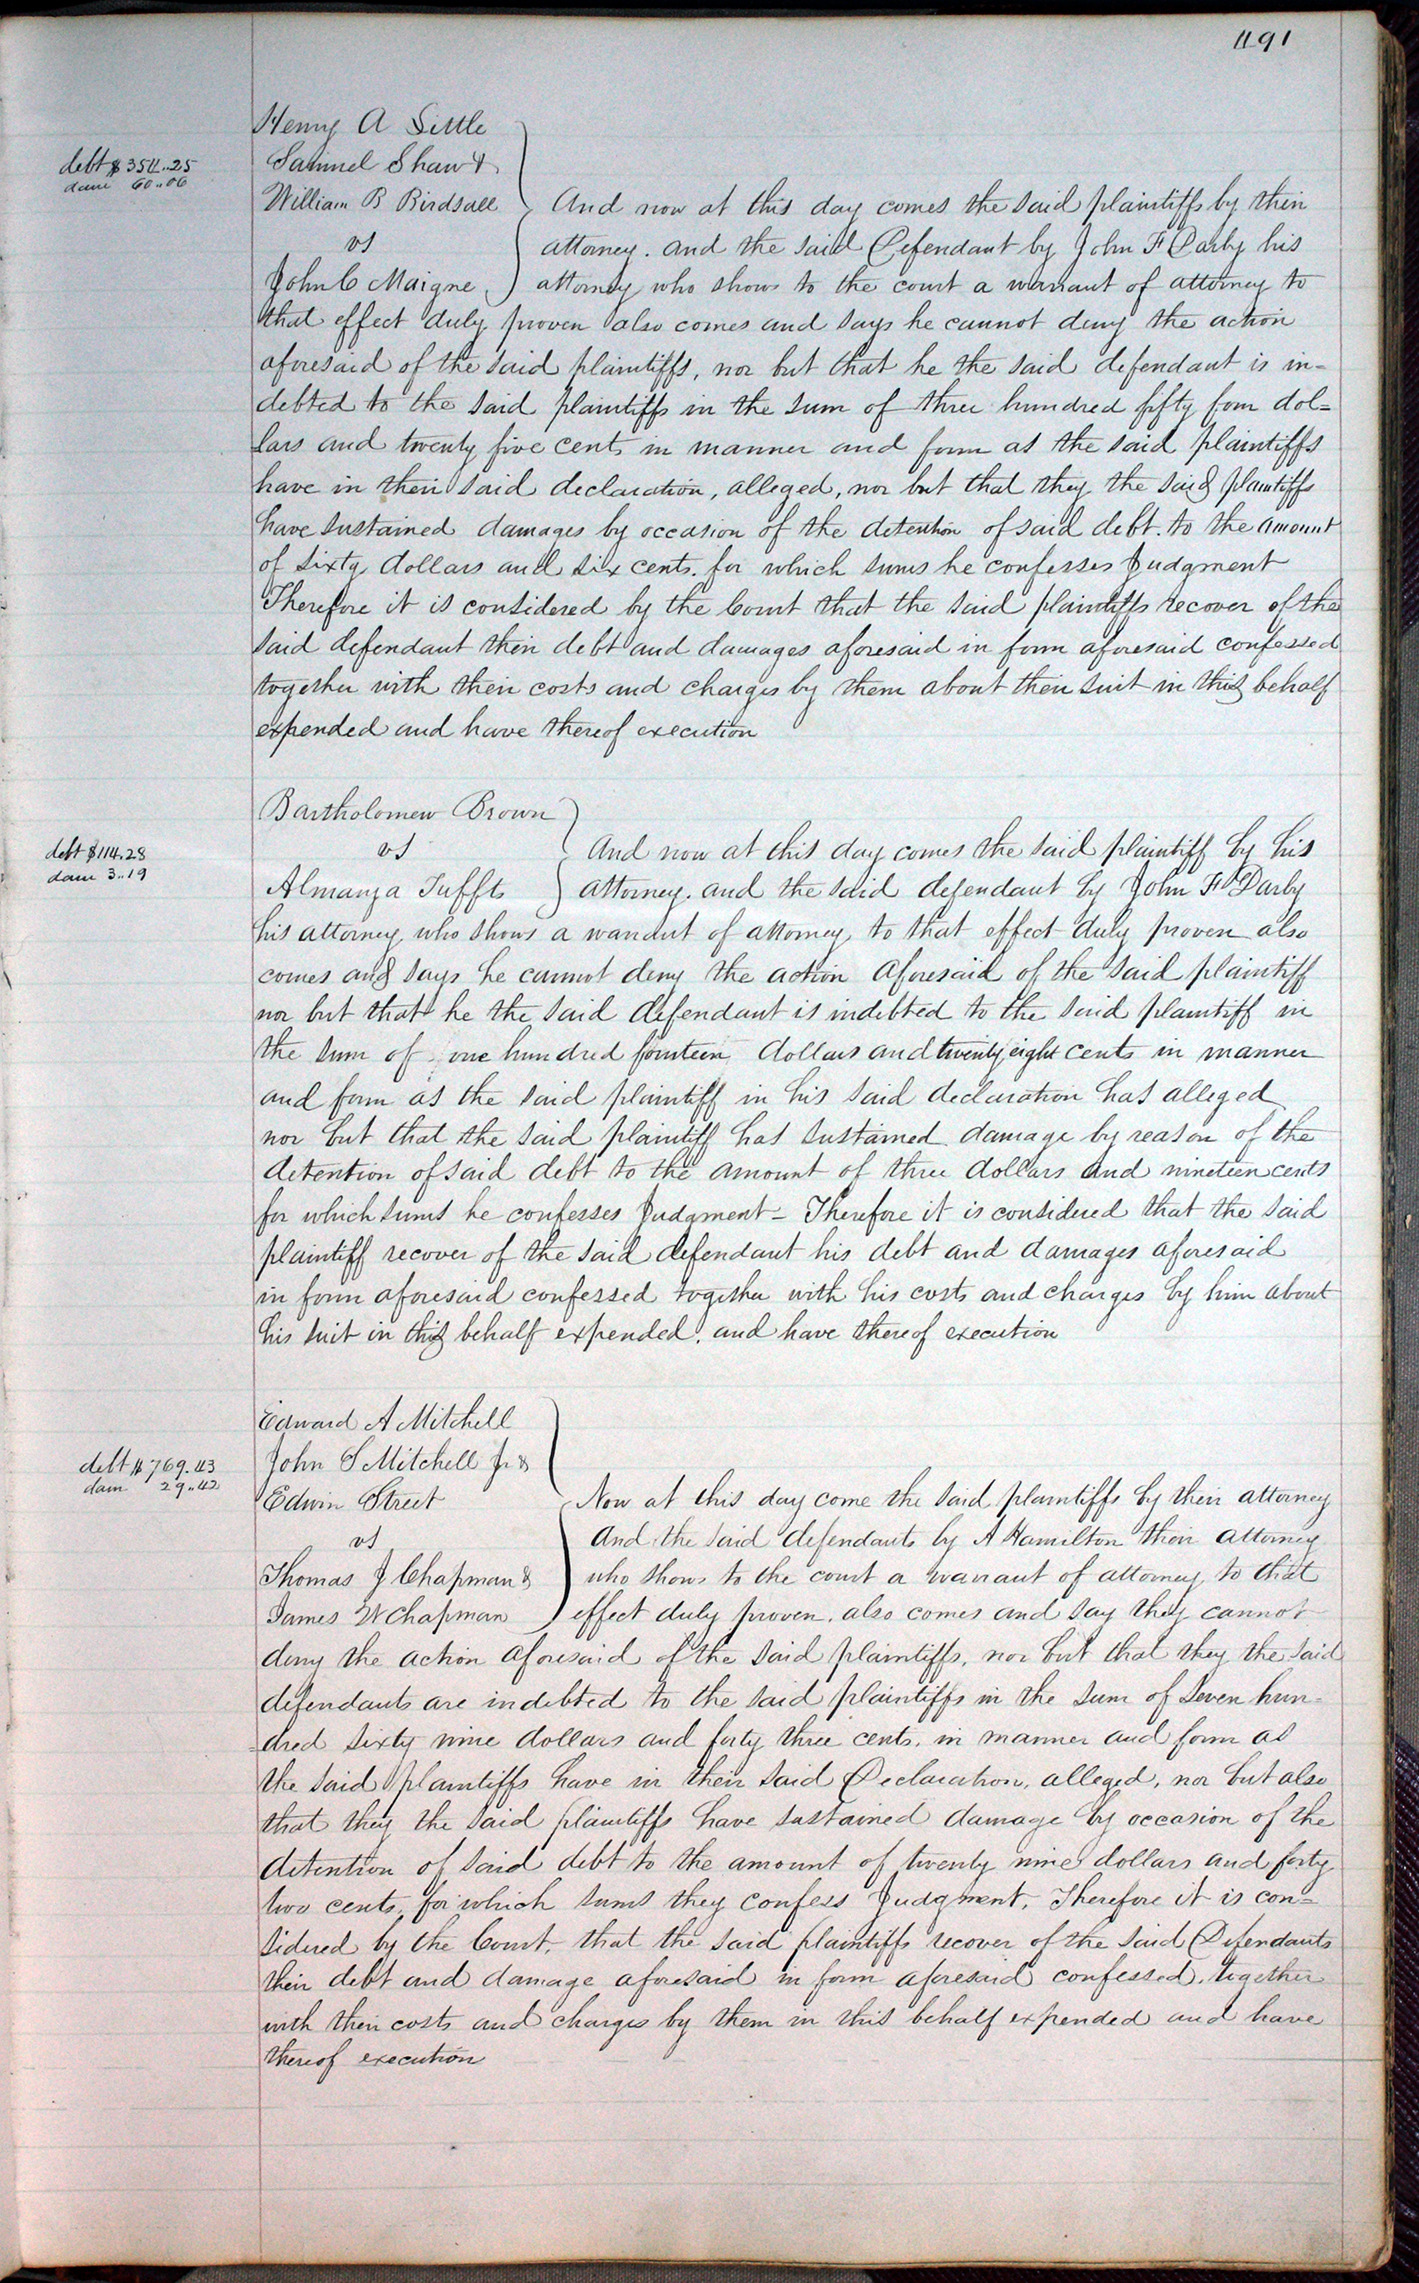 491
Henry A Little
Samuel Shaw &
debt $354..25
dam 60..06
William B Birdsall } And now at this day comes the said plaintiffs by their
vs attorney. and the said Defendant by John F Darby his
John C Maigne attorney who shows to the court a warrant of attorney to
that effect duly proven also comes and says he cannot deny the action
aforesaid of the said plaintiffs, nor but that he the said defendant is in=
debted to the said plaintiffs in the sum of three hundred fifty four dol=
lars and twenty five cents in manner and form as the said plaintiffs
have in their said declaration, alleged, nor but that they the said plaintiffs
have sustained damages by occasion of the detention of said debt. to the amount
of sixty dollars and six cents. for which sums he confesses Judgment
Therefore it is considered by the Court that the said plaintiffs recover of the
said defendant their debt and damages aforesaid in form aforesaid confessed
together with their costs and charges by them about their suit in this behalf
expended and have thereof execution
Bartholomew Brown
debt $114.28
dam 3..19
vs } And now at this day comes the said plaintiff by his
Almanza Tuffts attorney. and the said defendant by John F Darby
his attorney who shows a warrant of attorney to that effect duly proven also
comes and says he cannot deny the action aforesaid of the said plaintiff
nor but that he the said defendant is indebted to the said plaintiff in
the sum of one hundred fourteen dollars and twenty eight cents in manner
and form as the said plaintiff in his said declaration has alleged
nor but that the said plaintiff has sustained damage by reason of the
detention of said debt to the amount of three dollars and nineteen cents
for which sums he confesses Judgment - Therefore it is considered that the said
plaintiff recover of the said defendant his debt and damages aforesaid
in form aforesaid confessed together with his costs and charges by him about
his suit in this behalf expended. and have thereof execution
Edward A Mitchell
John S Mitchell Jr &
debt $769.43
dam 29..42
Edwin Street } Now at this day come the said plaintiffs by their attorney
vs And the said defendants by A Hamilton their attorney
Thomas J Chapman & who shows to the court a warrant of attorney to that
James W Chapman effect duly proven. also comes and say they cannot
deny the action aforesaid of the said plaintiffs, nor but that they the said
defendants are indebted to the said plaintiffs in the sum of seven hun=
dred sixty nine dollars and forty three cents. in manner and form as
the said plaintiffs have in their said Declaration, alleged, nor but also
that they the said plaintiffs have sustained damage by occasion of the
detention of said debt to the amount of twenty nine dollars and forty
two cents, for which sums they confess Judgment. Therefore it is con=
sidered by the Court, that the said plaintiffs recover of the said Defendants
their debt and damage aforesaid in form aforesaid confessed. together
with their costs and charges by them in this behalf expended and have
thereof execution